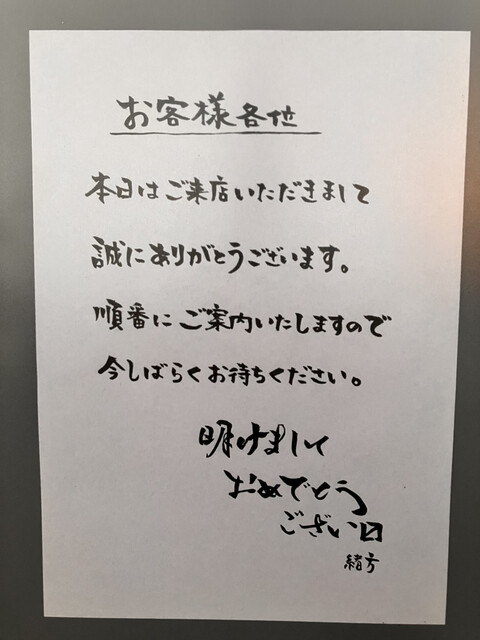 お客様各位
本日はご来店いただきまして
誠にありがとうございます。
順番にご案内いたしますので
今しばらくお待ちください。
明けまして
おめでとう
ござい〼
緒方